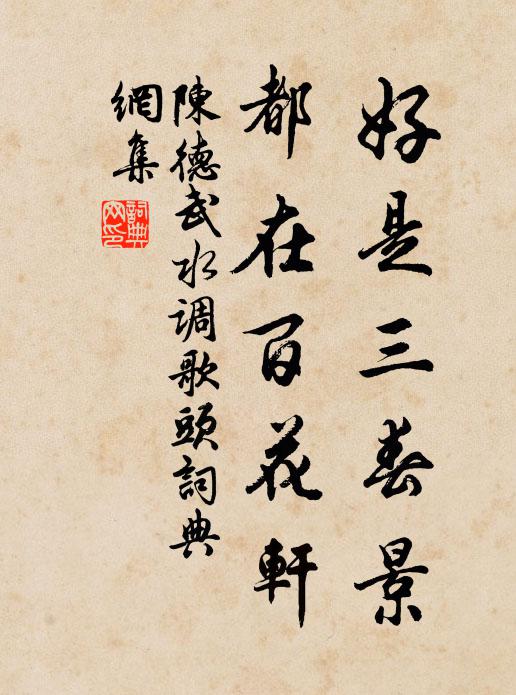 好是三春景
都在百花軒
陳德武水调歌頭詞典
網集
詞典
网印